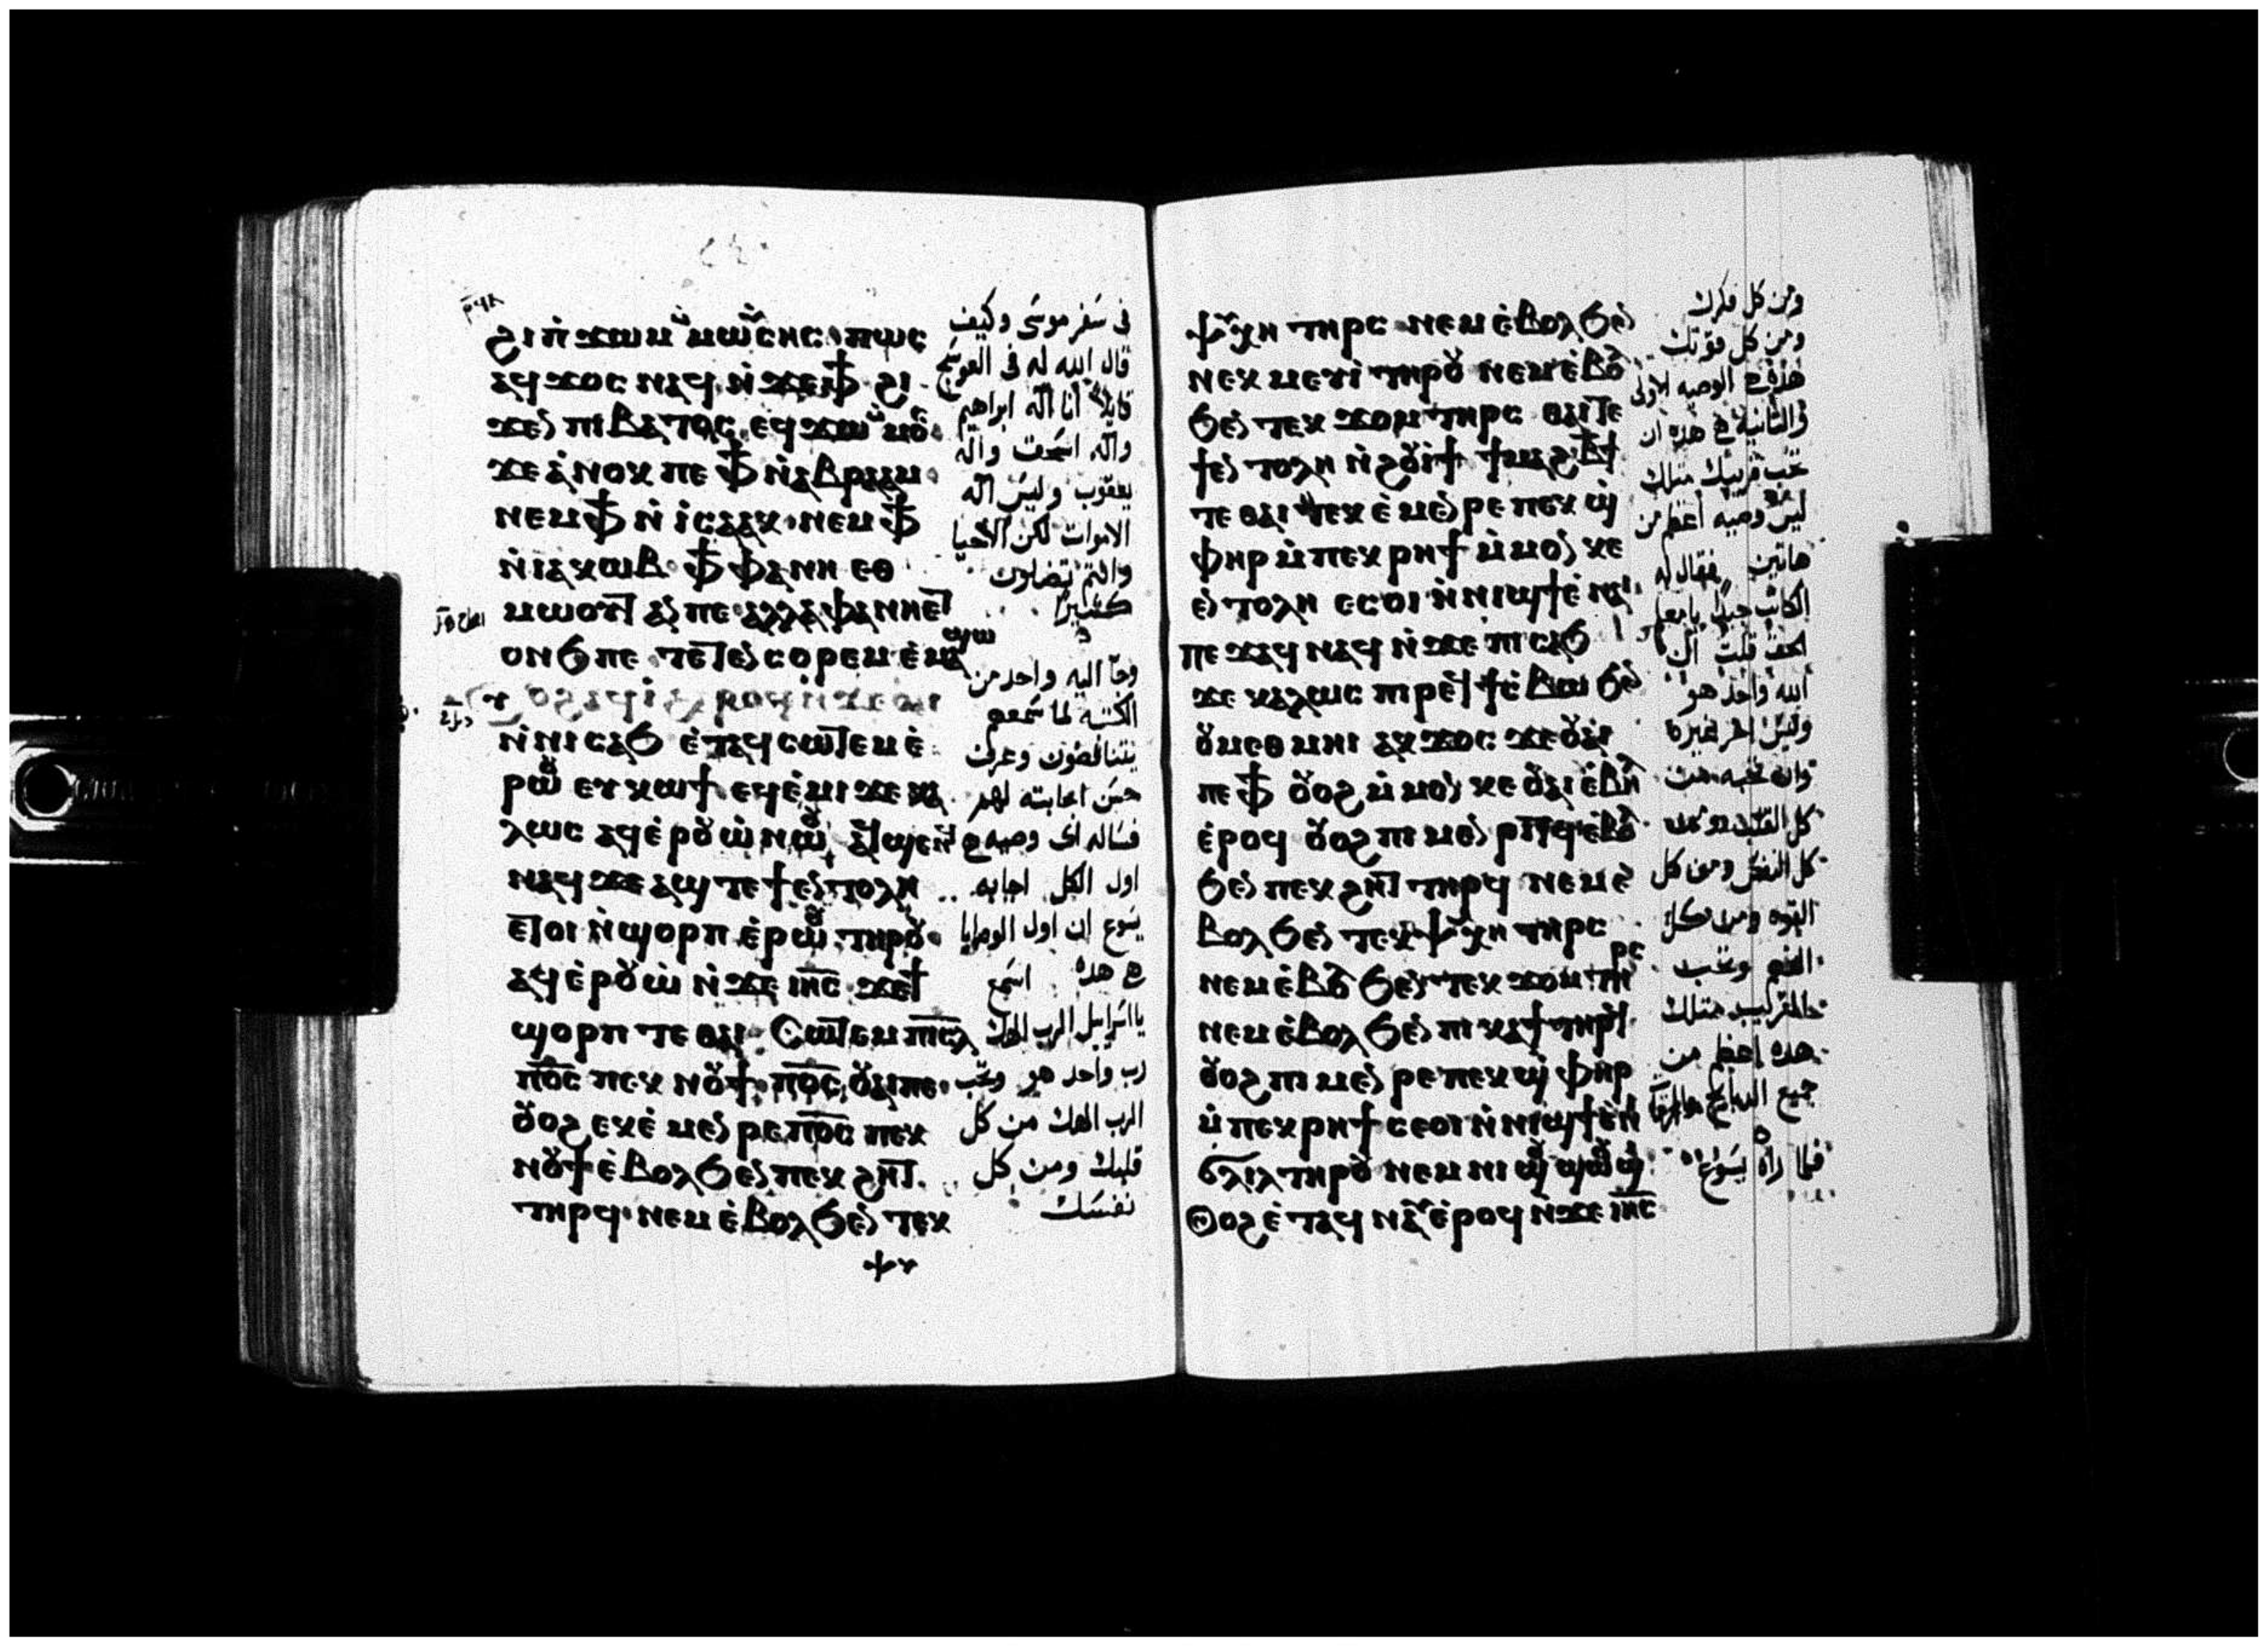 ϩⲓ ⲡ̀ϫⲱⲙ ⲙ̀ⲙⲱⲩ̈ⲥⲏⲥ · ⲡⲱⲥ
ⲁϥϫⲟⲥ ⲛⲁϥ ⲛ̀ϫⲉ ⲫϯ ϩⲓ
ϫⲉⲛ ⲡⲓⲃⲁⲧⲟⲥ ⲉϥϫⲱ ⲙ̀ⲙⲟⲥ
ϫⲉ ⲁ̀ⲛⲟⲕ ⲡⲉ ⲫϯ ⲛ̀ⲁⲃⲣⲁⲁⲙ
ⲛⲉⲙ ⲫϯ ⲛ̀ ⲓ̀ⲥⲁⲁⲕ · ⲛⲉⲙ ⲫϯ
ⲛ̀ⲓⲁⲕⲱⲃ ⲫϯ ⲫⲁⲛⲏ ⲉⲑ
ⲙⲱⲟⲩⲧ ⲁⲛ ⲡⲉ ⲁⲗⲗⲁ ⲫⲁⲛⲏⲉⲧ
ⲟⲛϧ ⲡⲉ ⲧⲉⲧⲉⲛⲥⲟⲣⲉⲙ ⲉ̀ⲙⲁϣⲱ
ⲛ̀ⲛⲓⲥⲁϧ ⲉ̀ⲧⲁϥⲥⲱⲧⲉⲙ ⲉ̀
ⲣⲱⲟⲩ ⲉⲩⲕⲱϯ ⲉϥⲉ̀ⲙⲓ ϫⲉ ⲕⲁ
ⲗⲱⲥ ⲁϥⲉ̀ⲣⲟⲩⲱ̀ ⲛⲱⲟⲩ ⲁϥϣⲉⲛϥ
ⲛⲁϥ ϫⲉ ⲁϣ ⲧⲉ ϯⲉⲛⲧⲟⲗⲏ
ⲉⲧⲟⲓ ⲛ̀ϣⲟⲣⲡ ⲉ̀ⲣⲱⲟⲩ ⲧⲏⲣⲟⲩ
ⲁϥⲉ̀ⲣⲟⲩⲱ̀ ⲛ̀ϫⲉ ⲓⲏⲥ ϫⲉ ϯ
ϣⲟⲣⲡ ⲧⲉ ⲑⲁⲓ ⲥⲱⲧⲉⲙ ⲡⲓⲥⲗ
ⲡⲟⲥ ⲡⲉⲕⲛⲟⲩϯ ⲡⲟⲥ ⲟⲩⲁⲓ ⲡⲉ
ⲟⲩⲟϩ ⲉⲕⲉ̀ⲙⲉⲛⲣⲉ ⲡⲟⲥ ⲡⲉⲕ
ⲛⲟⲩϯ ⲉ̀ⲃⲟⲗϧⲉⲛ ⲡⲉⲕϩⲏⲧ
ⲧⲏⲣϥ · ⲛⲉⲙ ⲉ̀ⲃⲟⲗϧⲉⲛ ⲧⲉⲕ
في سفر موسى وكيف
قال الله له في العوسج
قايلا أنا اله ابراهيم
واله اسحق واله
يعقوب وليس اله
الاموات لكن الاحيا
وانتم تضلون
كثيرا
وجا اليه واحد من
الكتبه لما سمعهم
يتناقضون وعرف
حسن اجابته لهم
فساله اي وصيه هي
اول الكل اجابه
يسوع ان اول الوصايا
هي هذه اسمع
يا اسرايل الرب الهك
رب واحد هو وتحب
الرب الهك من كل
قلبك ومن كل
نفسك
ⲯⲩⲭⲏ ⲧⲏⲣⲥ ⲛⲉⲙ ⲉ̀ⲃⲟⲗϧⲉⲛ
ⲛⲉⲕⲙⲉⲩⲓ̀ ⲧⲏⲣⲟⲩ ⲛⲉⲙ ⲉ̀ⲃⲟⲗ
ϧⲉⲛ ⲧⲉⲕϫⲟⲙ ⲧⲏⲣⲥ ⲑⲁⲓ ⲧⲉ
ϯⲉⲛⲧⲟⲗⲏ ⲛ̀ϩⲟⲩⲓ̀ϯ ϯⲙⲁϩⲃϯ
ⲧⲉ ⲑⲁⲓ ⲉⲕⲉ̀ⲙⲉⲛⲣⲉ ⲡⲉⲕϣ
ⲫⲏⲣ ⲙ̀ⲡⲉⲕⲣⲏϯ ⲙ̀ⲙⲟⲛ ⲕⲉ
ⲉⲛⲧⲟⲗⲏ ⲉⲥⲟⲓ ⲛ̀ⲛⲓϣϯ ⲉ̀ⲛⲁⲓ
ⲡⲉϫⲁϥ ⲛⲁϥ ⲛ̀ϫⲉ ⲡⲓⲥⲁϧ
ϫⲉ ⲕⲁⲗⲱⲥ ⲡⲓⲣⲉϥϯⲥ̀ⲃⲱ ϧⲉⲛ
ⲟⲩⲙⲉⲑⲙⲏⲓ ⲁⲕϫⲟⲥ ϫⲉ ⲟⲩⲁⲓ
ⲡⲉ ⲫϯ ⲟⲩⲟϩ ⲙ̀ⲙⲟⲛ ⲕⲉⲟⲩⲁⲓ ⲉ̀ⲃⲏⲗ
ⲉ̀ⲣⲟϥ ⲟⲩⲟϩ ⲡⲓⲙⲉⲛⲣⲓⲧϥ ⲉ̀ⲃⲟⲗ
ϧⲉⲛ ⲡⲉⲕϩⲏⲧ ⲧⲏⲣϥ ⲛⲉⲙ ⲉ̀
ⲃⲟⲗϧⲉⲛ ⲧⲉⲕⲯⲩⲭⲏ ⲧⲏⲣⲥ
ⲛⲉⲙ ⲉ̀ⲃⲟⲗϧⲉⲛ ⲧⲉⲕϫⲟⲙ ⲧⲏⲣⲥ
ⲛⲉⲙ ⲉ̀ⲃⲟⲗϧⲉⲛ ⲡⲓⲕⲁϯ ⲧⲏⲣϥ
ⲟⲩⲟϩ ⲡⲓⲙⲉⲛⲣⲉ ⲡⲉⲕϣⲫⲏⲣ
ⲙ̀ⲡⲉⲕⲣⲏϯ ⲥⲉⲟⲓ ⲛ̀ⲛⲓϣϯ ⲉ̀ⲛⲓ
ϭⲗⲓⲗ ⲧⲏⲣⲟⲩ ⲛⲉⲙ ⲛⲓϣⲟⲩϣⲱⲟⲩϣⲓ
ⲟⲩⲟϩ ⲉ̀ⲧⲁϥⲛⲁⲩ ⲉ̀ⲣⲟϥ ⲛ̀ϫⲉ ⲓⲏⲥ
ومن كل فكرك
ومن كل قوتك
هذه هي الوصيه الاولى
والثانية هي هذه ان
تحب قريبك مثلك
ليس وصيه أعظم من
هاتين فقال له
الكاتب جيدا يا معلم
الحق قلت ان
الله واحد هو
وليس اخر غيره
وان تحبه من
كل القلب ومن
كل النفس ومن كل
القوه ومن كل
الفهم وتحب
القريب مثلك
هذه اعظم من
جميع الذبايح
فلما راه يسوع